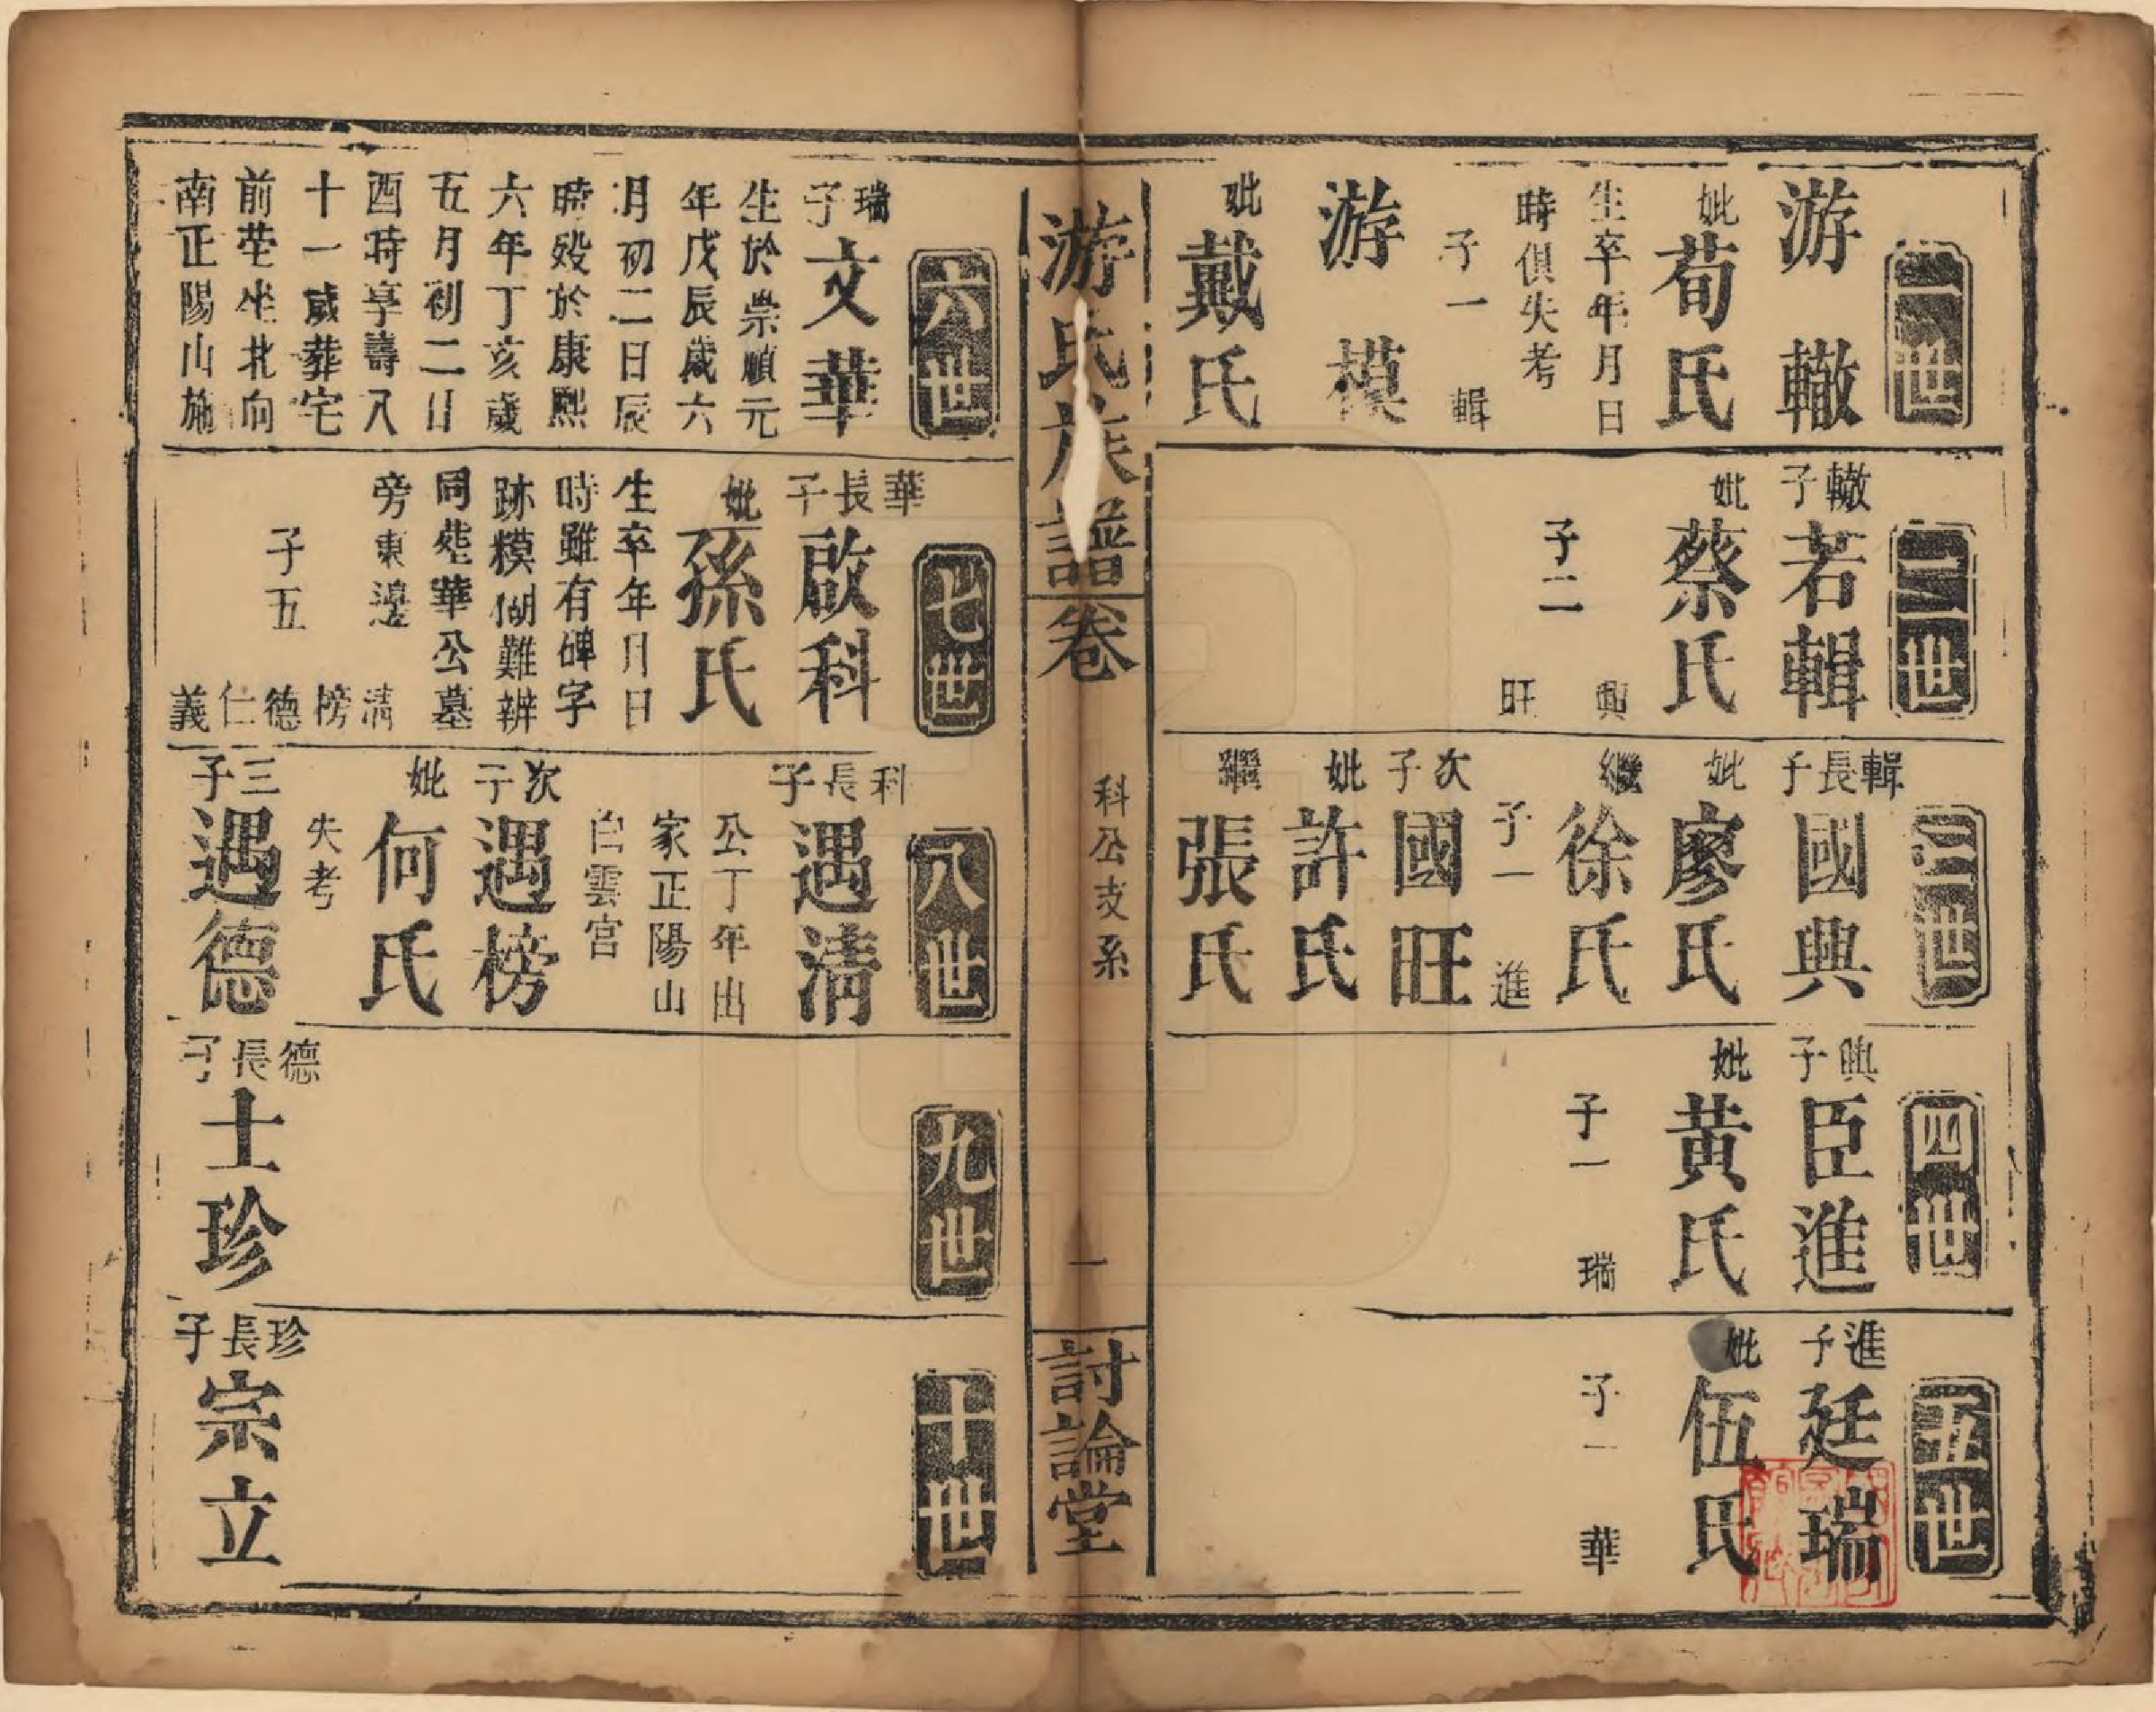 一世
游轍
妣荀氏
生卒年月日
時俱失考
子一 輯
游模
妣戴氏
二世
轍子若輯
妣蔡氏
子二 興
旺
三世
輯長子國興
妣廖氏
繼徐氏
子一 進
次子國旺
妣許氏
繼張氏
四世
興子臣進
妣黄氏
子一 瑞
五世
進子廷瑞
妣伍氏
子一 華
游氏族譜卷 科公支系 一 討論堂
六世
瑞子文華
生於崇順元
年戊辰歲六
月初二日辰
時殁於康熙
六年丁亥歲
五月初二日
酉時享壽八
十一歲葬宅
前塋坐北向
南正陽山施
七世
華長子啟科
妣孫氏
生卒年月日
時雖有碑字
跡糢糊難辨
同塋華公墓
旁東邊
子五 清榜德仁義
八世
科長子遇清
公丁年出
家正陽山
白雲宫
次子遇榜
妣何氏
失考
三子遇德
九世
德長子士珍
十世
珍長子宗立